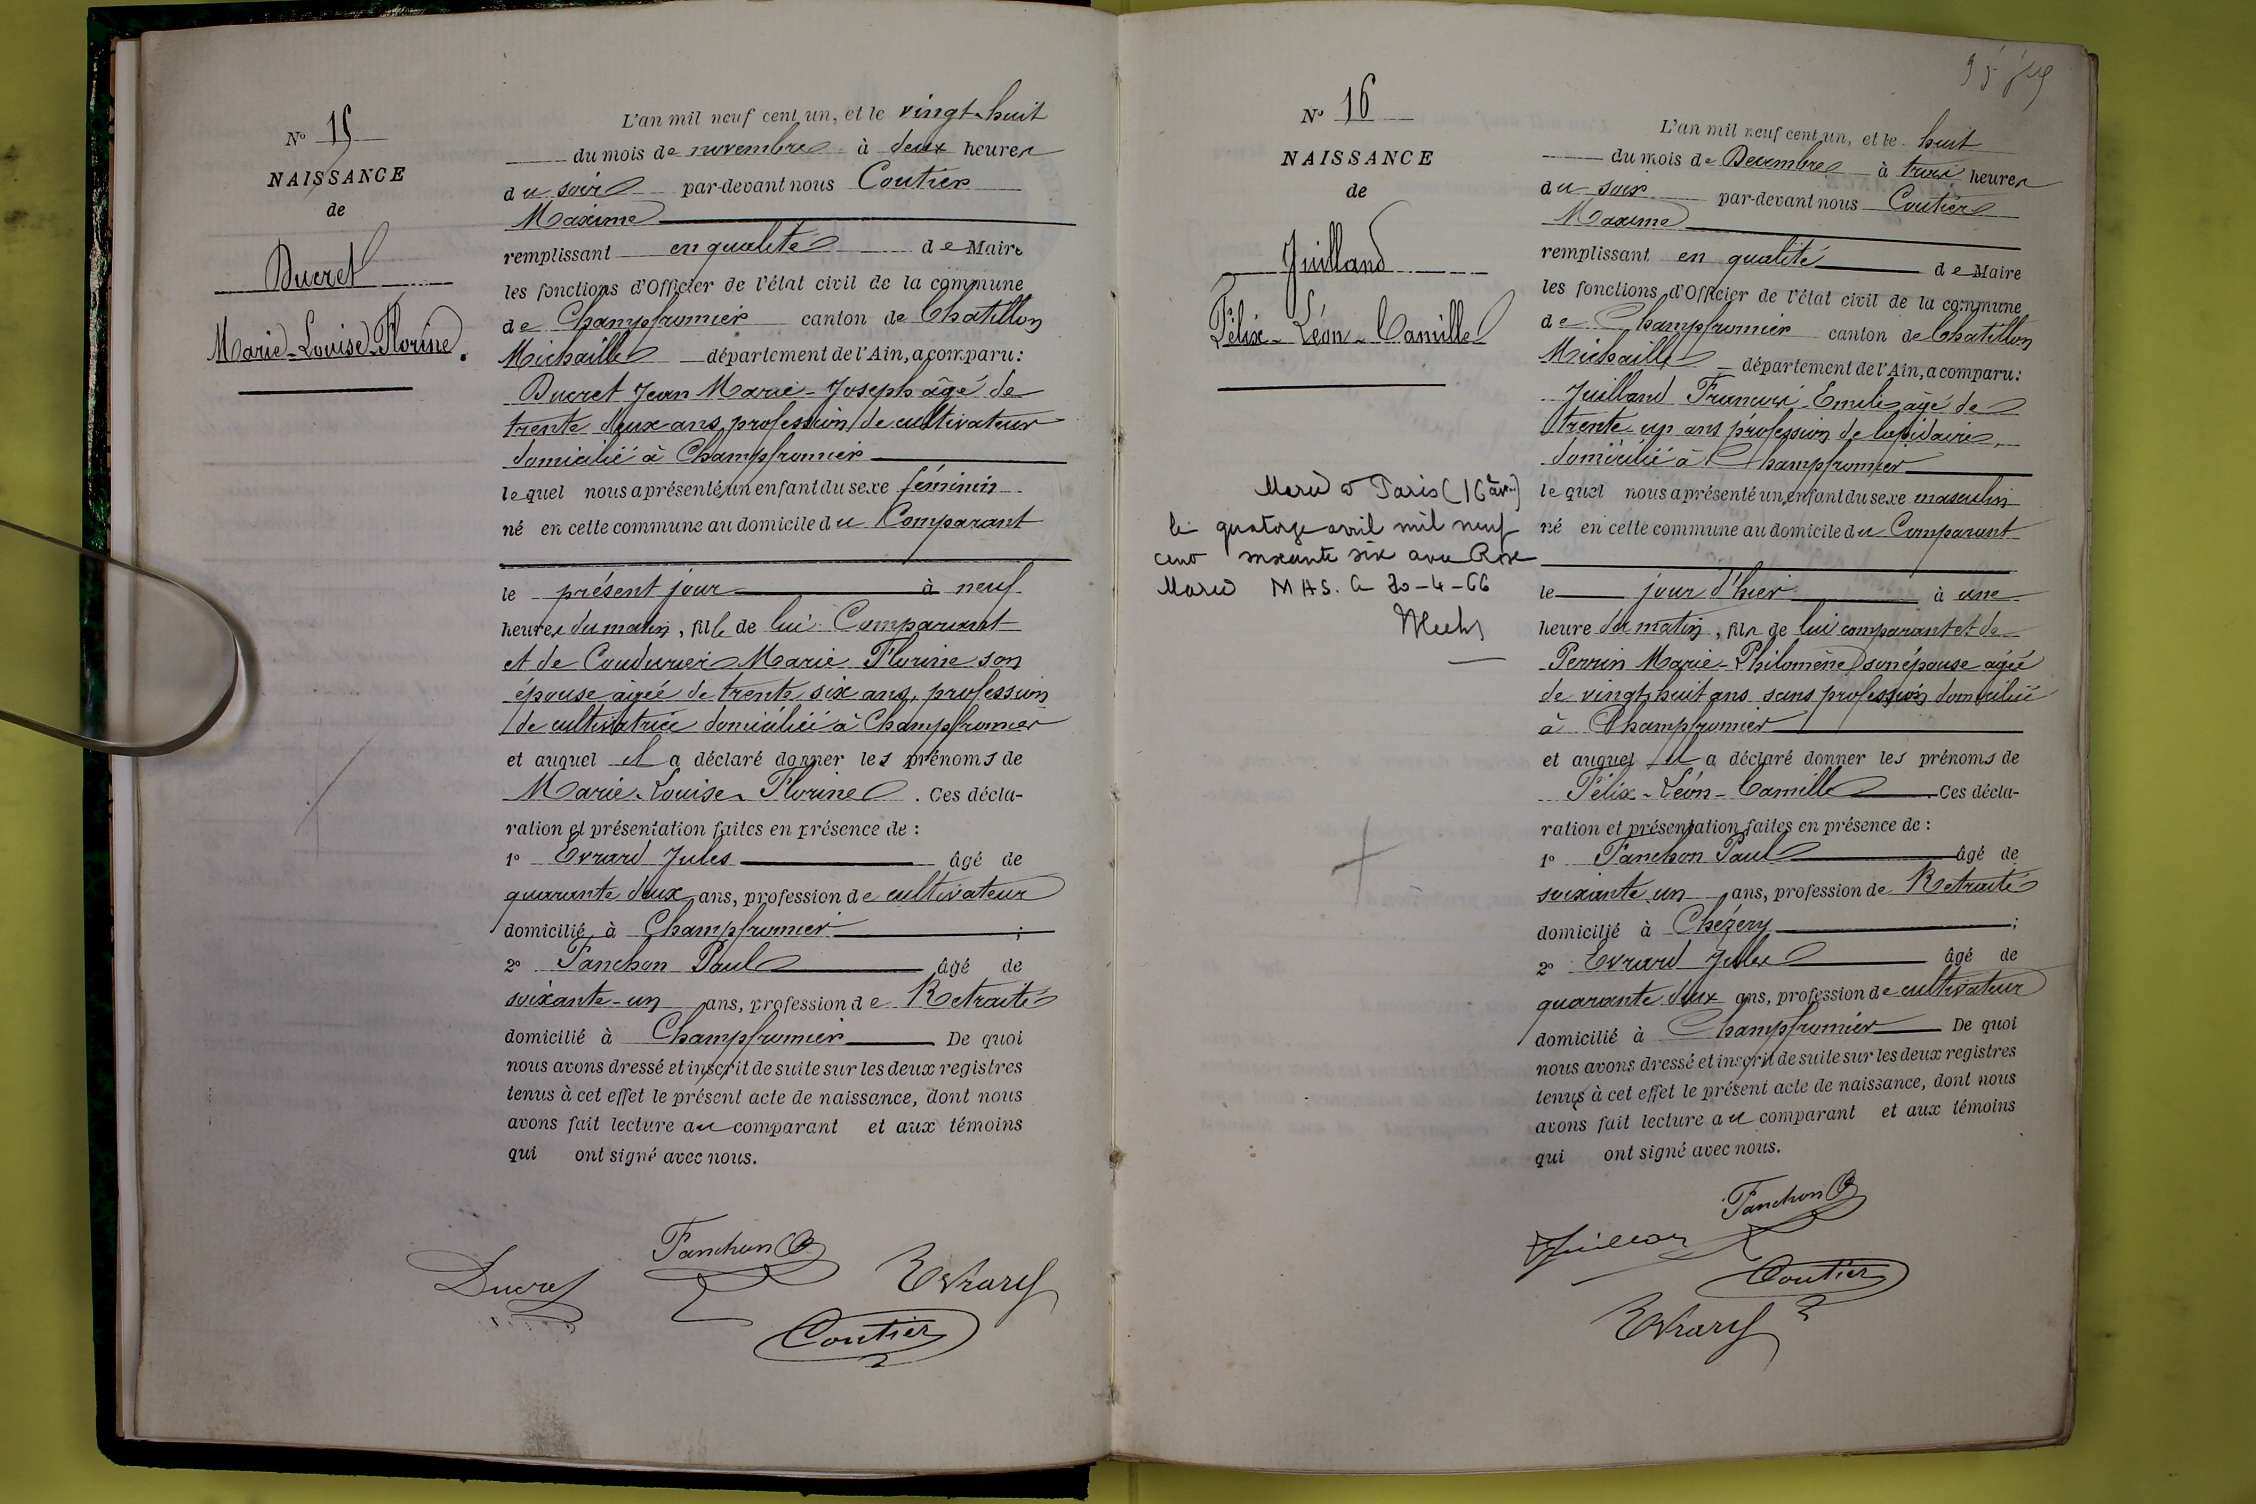 N° 15
NAISSANCE
de
Ducret
Marie-Louise-Florine.
L'an mil neuf cent un, et le vingt-huit
du mois de novembre à deux heures
du soir par-devant nous Coutier
Maxime
remplissant en qualité de Maire
les fonctions d'Officier de l'état civil de la commune
de Champfromier canton de Chatillon
Michaille département de l'Ain, a comparu:
Ducret Jean Marie-Joseph âgé de
trente deux ans, profession de cultivateur
domicilié à Champfromier
lequel nous a présenté un enfant du sexe féminin
né en cette commune au domicile du Comparant
le présent jour à neuf
heures du matin, fille de lui Comparant
et de Coudurier Marie Florine son
épouse agée de trente six ans, profession
de cultivatrice domiciliée à Champfromier
et auquel il a déclaré donner les prénoms de
Marie-Louise-Florine. Ces décla-
ration et présentation faites en présence de :
1° Evrard Jules âgé de
quarante deux ans, profession de cultivateur
domicilié à Champfromier ;
2° Fanchon Paul âgé de
soixante-un ans, profession de Retraité
domicilié à Champfromier De quoi
nous avons dressé et inscrit de suite sur les deux registres
tenus à cet effet le présent acte de naissance, dont nous
avons fait lecture au comparant et aux témoins
qui ont signé avec nous.
Ducret Fanchon P Evrard
Coutier
N° 16
NAISSANCE
de
Juilland
Félix-Léon-Camille
Marié à Paris (16 arr.)
le quatorze avril mil neuf
cent soixante six avec Rose
Marie MAS. le 20-4-66
L'an mil neuf cent un, et le huit
du mois de Decembre à trois heures
du soir par-devant nous Coutier
Maxime
remplissant en qualité de Maire
les fonctions d'Officier de l'état civil de la commune
de Champfromier canton de Chatillon
Michaille département de l'Ain, a comparu:
Juilland François Emile âgé de
trente un ans profession de lapidaire,
domicilié à Champfromier
lequel nous a présenté un enfant du sexe masculin
né en cette commune au domicile du Comparant
le jour d'hier à une
heure du matin, fils de lui comparant et de
Perrin Marie-Philomène son épouse agée
de vingt-huit ans sans profession domiciliée
à Champfromier
et auquel il a déclaré donner les prénoms de
Félix-Léon-Camille Ces décla-
ration et présentation faites en présence de :
1° Fanchon Paul âgé de
soixante un ans, profession de Retraité
domicilié à Chézery ;
2° Evrard Jules âgé de
quarante deux ans, profession de cultivateur
domicilié à Champfromier De quoi
nous avons dressé et inscrit de suite sur les deux registres
tenus à cet effet le présent acte de naissance, dont nous
avons fait lecture au comparant et aux témoins
qui ont signé avec nous.
Fanchon P
Juilland
Coutier
Evrard